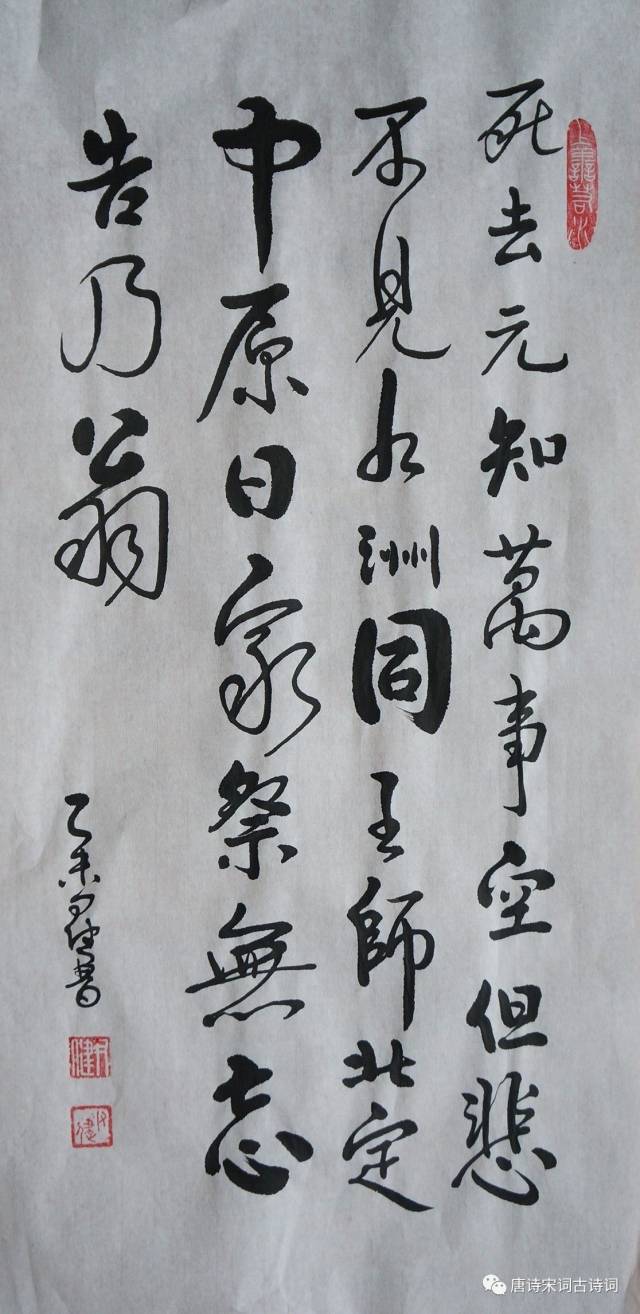 上善若水
死去元知萬事空但悲
不見九洲同王師北定
中原日家祭無忘
告乃翁
乙未書
唐诗宋词古诗词